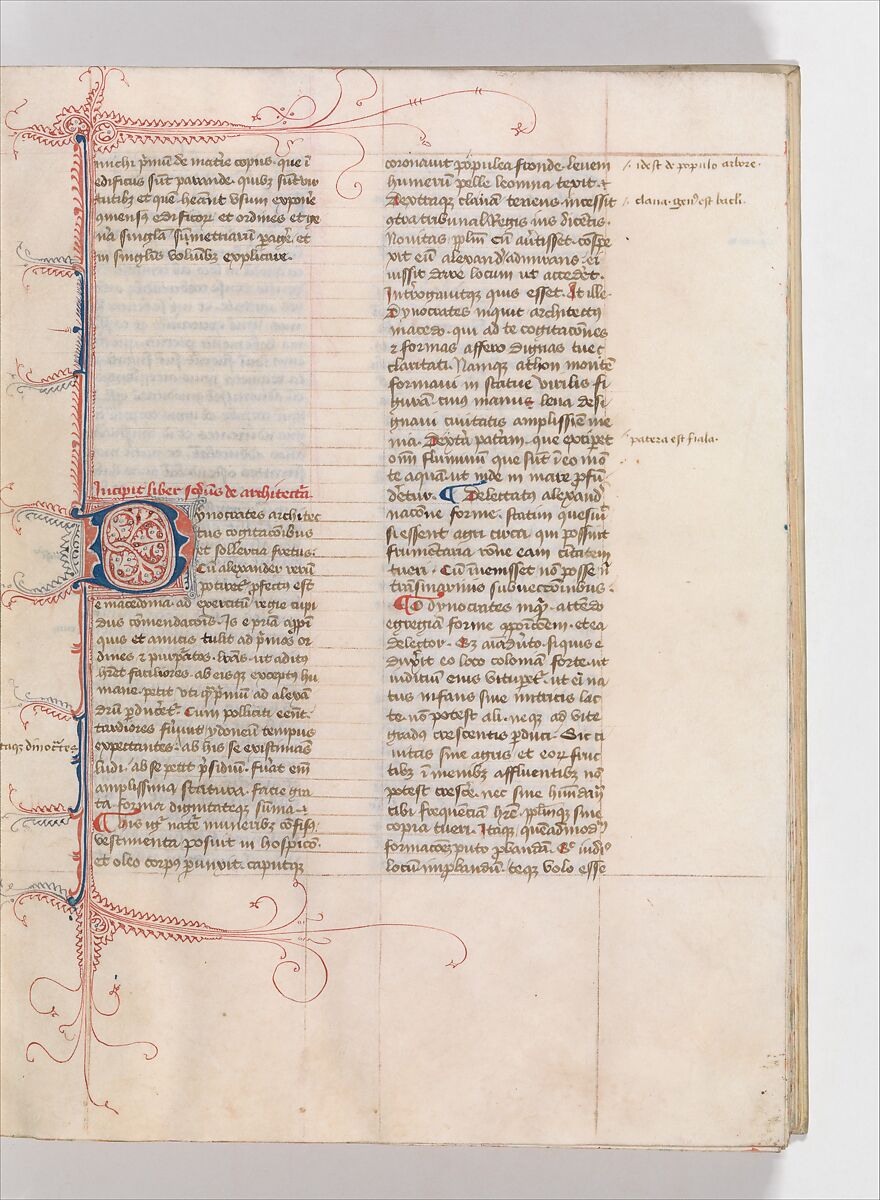 michi p̄mum de mat̄ie copiis. que ī
edificiis sūt parande. quibꝫ sūt vir
tutibꝫ et quē hēant vsum expone
edificioꝝ et ordines et ge
n̄a singl̄a
in singlis volūibꝫ explicare.
Incipit liber sc̄dus de architect̄a
Dynocrates architec
tus cogitac̄onibus
et sollercia fretus.
Cū alexander rerū
potiret̄ ꝓfectus est
e macedonia ad exercitū regie cupi
dus comendac̄ois. Is e pr̄ia
quis et amicis tulit ad p̄mos or
dines ⁊ purp̄atos. lr̄as. ut aditꝰ
hr̄et faciliores. ab eisqꝫ exceptꝰ hu
mane petit vti ad alexā
drū ꝑducēt̄. Cum polliciti eēnt.
tardiores fūrūt ydoneū tempus
expectantes. ab his se existimās
ludi. ab se petit p̄sidiū. fūat em̄
amplissima statura. facie gra
ta forma dignitateqꝫ sūma.
His igr̄ nat̄e muneribꝫ cōfisꝰ.
vestimenta posuit in hospicō.
et oleo corpꝰ ꝑunxit. caputqꝫ
coronauit populea fronde. leuem
humerū pelle leonina texit. ⁊
Dextraqꝫ clauā tenens. incessit
ɔtra tribunal Regis ius dicētis.
Nouitas pp̄lm̄ cū au̓tisset. cōspe
xit eū alexand̓ admirans. ei
iussit dare locum ut accedēt̄.
Int̄rogauitqꝫ quis esset. At ille.
Dynocrates inquit architectꝰ
macedo. qui ad te cogitac̄ones
⁊ formas affero dignas tue
claritati. Namqꝫ athon montē
formaui in statue virilis fi
gurā. cuiꝰ manus leua desi
gnaui ciuitatis amplissiē me
nia. Dext̄a pat̄am. que excipet
om̄ fluminū que sūt ī eo mō
te aquā. ut inde in mare ꝓfū
det̄ur. Delectatꝰ alexand̓
rac̄one forme. statim quesiuit
si essent agri circa. qui possint
frumentaria rōne eam ciuitatem
tueri. Cū inuenisset nō posse n̄
trāsmarinis subuectionibus.
O dynocrates inqͣt. attēdo
egregiā forme ꝯpoic̄oem. et ea
delector. Sꝫ aīad̓uto. si quis e
dux̓it eo loco coloniam forte. ut
iudiciū eius vituꝑet̄. ut eī na
tus infans sine nutricis lac
te. nō potest ali. neqꝫ ad vite
gradꝰ crescentis ꝑduci. Sic ci
uitas sine agris et eoꝝ fruc
tibꝫ ī menibꝫ affluentibꝫ nō
potest cresc̓e. nec sine
cibi frequēciā hr̄e. pp̄lmqꝫ sine
copia tueri. Itaqꝫ. queadmodū
formac̄oeꝫ puto ꝓbandā. sꝫ iudic̄o
locū improbandū. teqꝫ volo esse
/. idest de populo arbore.
/. claua. genꝰ est baculi.
patera est fiala.